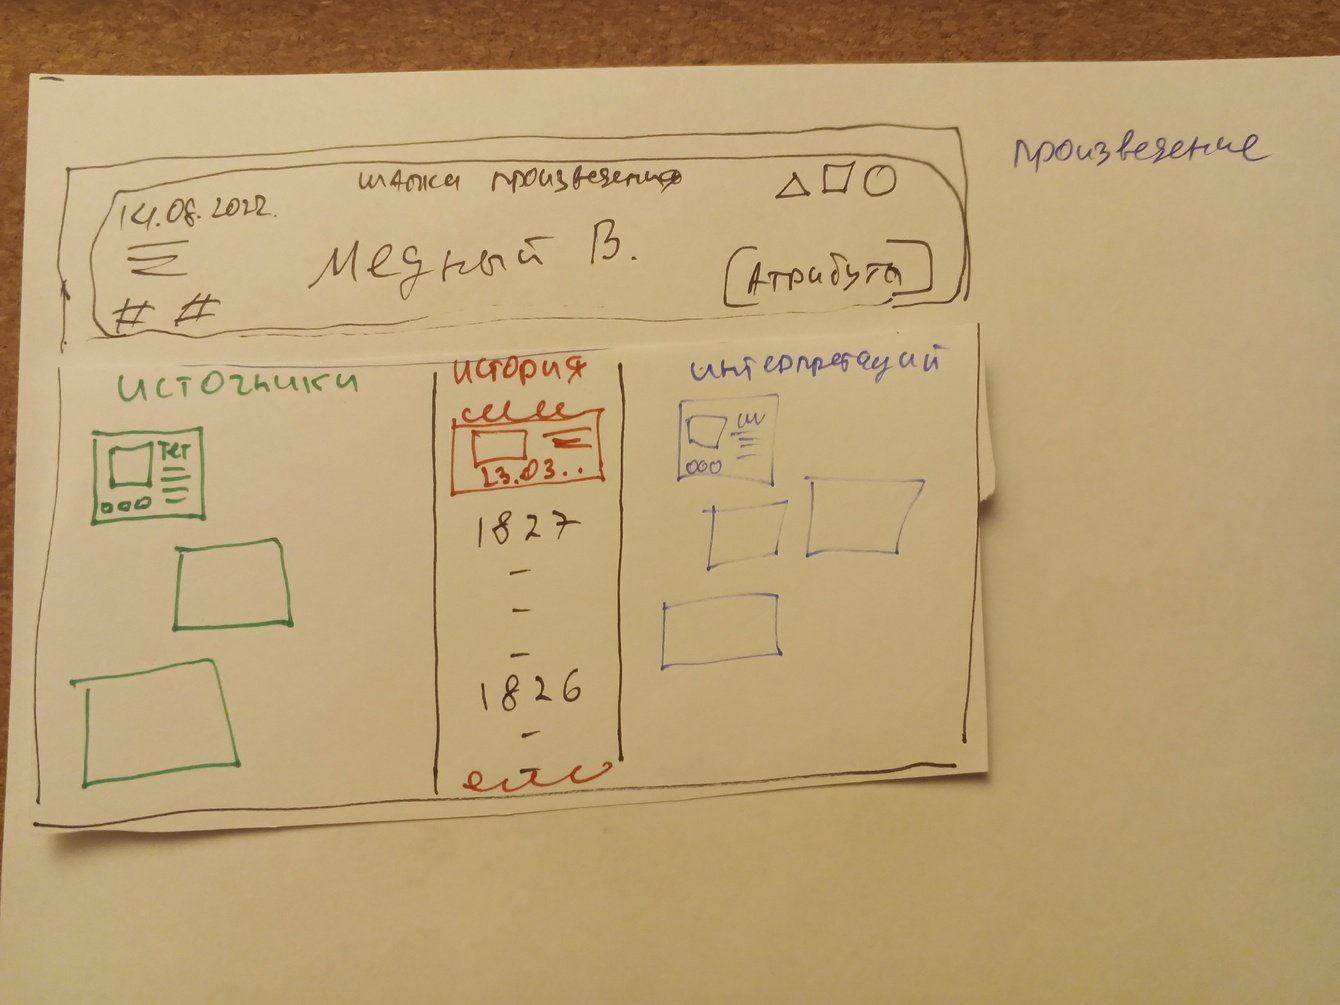 произведение
шапки произведения
14.08.2022.
Медный В.
# #
Атрибуты
источники
история
интерпретаций
тет
23.03..
1827
1826